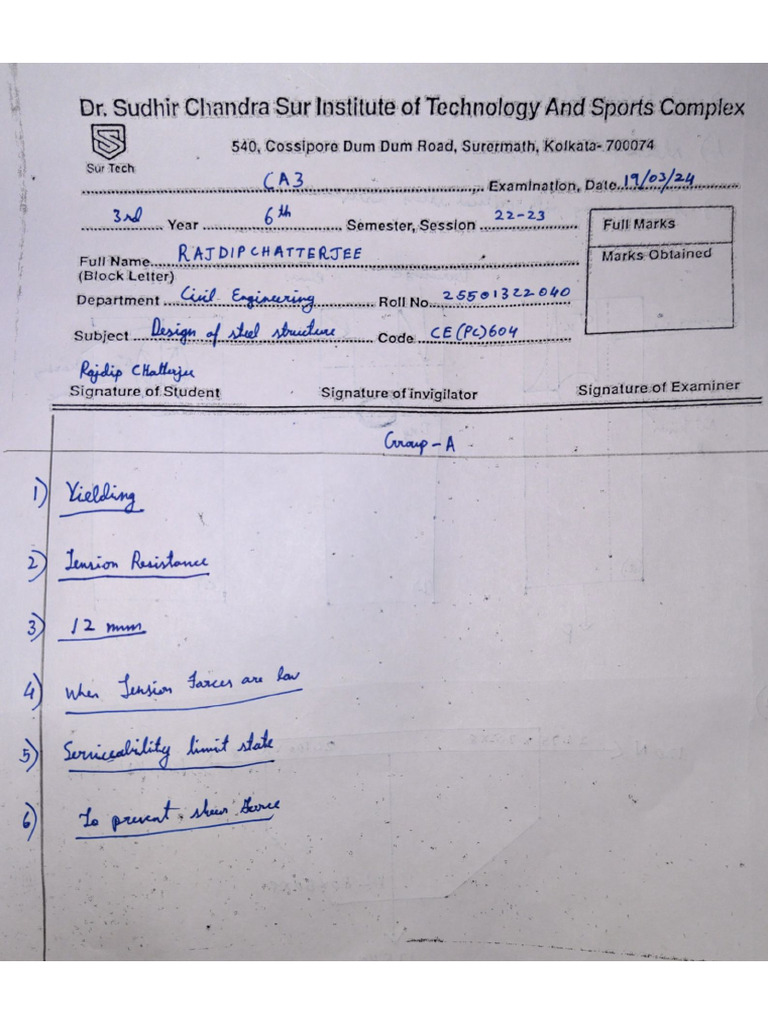 Dr. Sudhir Chandra Sur Institute of Technology And Sports Complex
540, Cossipore Dum Dum Road, Surermath, Kolkata- 700074
Sur Tech
CA3 Examination, Date 19/03/24
3rd Year 6th Semester, Session 22-23
Full Marks
Full Name RAJDIP CHATTERJEE
(Block Letter)
Marks Obtained
Department Civil Engineering Roll No. 25501322040
Subject Design of steel structure Code CE(PC)604
Rajdip Chatterjee
Signature of Student Signature of Invigilator Signature of Examiner
Group - A
1) Yielding
2) Tension Resistance
3) 12 mm
4) When Tension Forces are low
5) Serviceability limit state
6) To prevent shear force